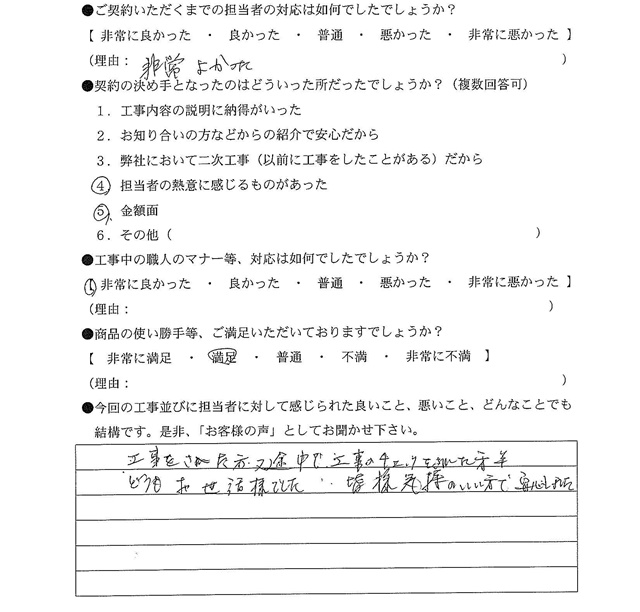 ●ご契約いただくまでの担当者の対応は如何でしたでしょうか？
【 非常に良かった ・ 良かった ・ 普通 ・ 悪かった ・ 非常に悪かった 】
（理由： 非常 よかった ）
●契約の決め手となったのはどういった所だったでしょうか？（複数回答可）
1．工事内容の説明に納得がいった
2．お知り合いの方などからの紹介で安心だから
3．弊社において二次工事（以前に工事をしたことがある）だから
4．担当者の熱意に感じるものがあった
5．金額面
6．その他（ ）
●工事中の職人のマナー等、対応は如何でしたでしょうか？
【 非常に良かった ・ 良かった ・ 普通 ・ 悪かった ・ 非常に悪かった 】
（理由： ）
●商品の使い勝手等、ご満足いただいておりますでしょうか？
【 非常に満足 ・ 満足 ・ 普通 ・ 不満 ・ 非常に不満 】
（理由： ）
●今回の工事並びに担当者に対して感じられた良いこと、悪いこと、どんなことでも
結構です。是非、「お客様の声」としてお聞かせ下さい。
工事をされた方 又途中で工事のチェックをされた方
どうも お世話様でした 皆様 のいい方で